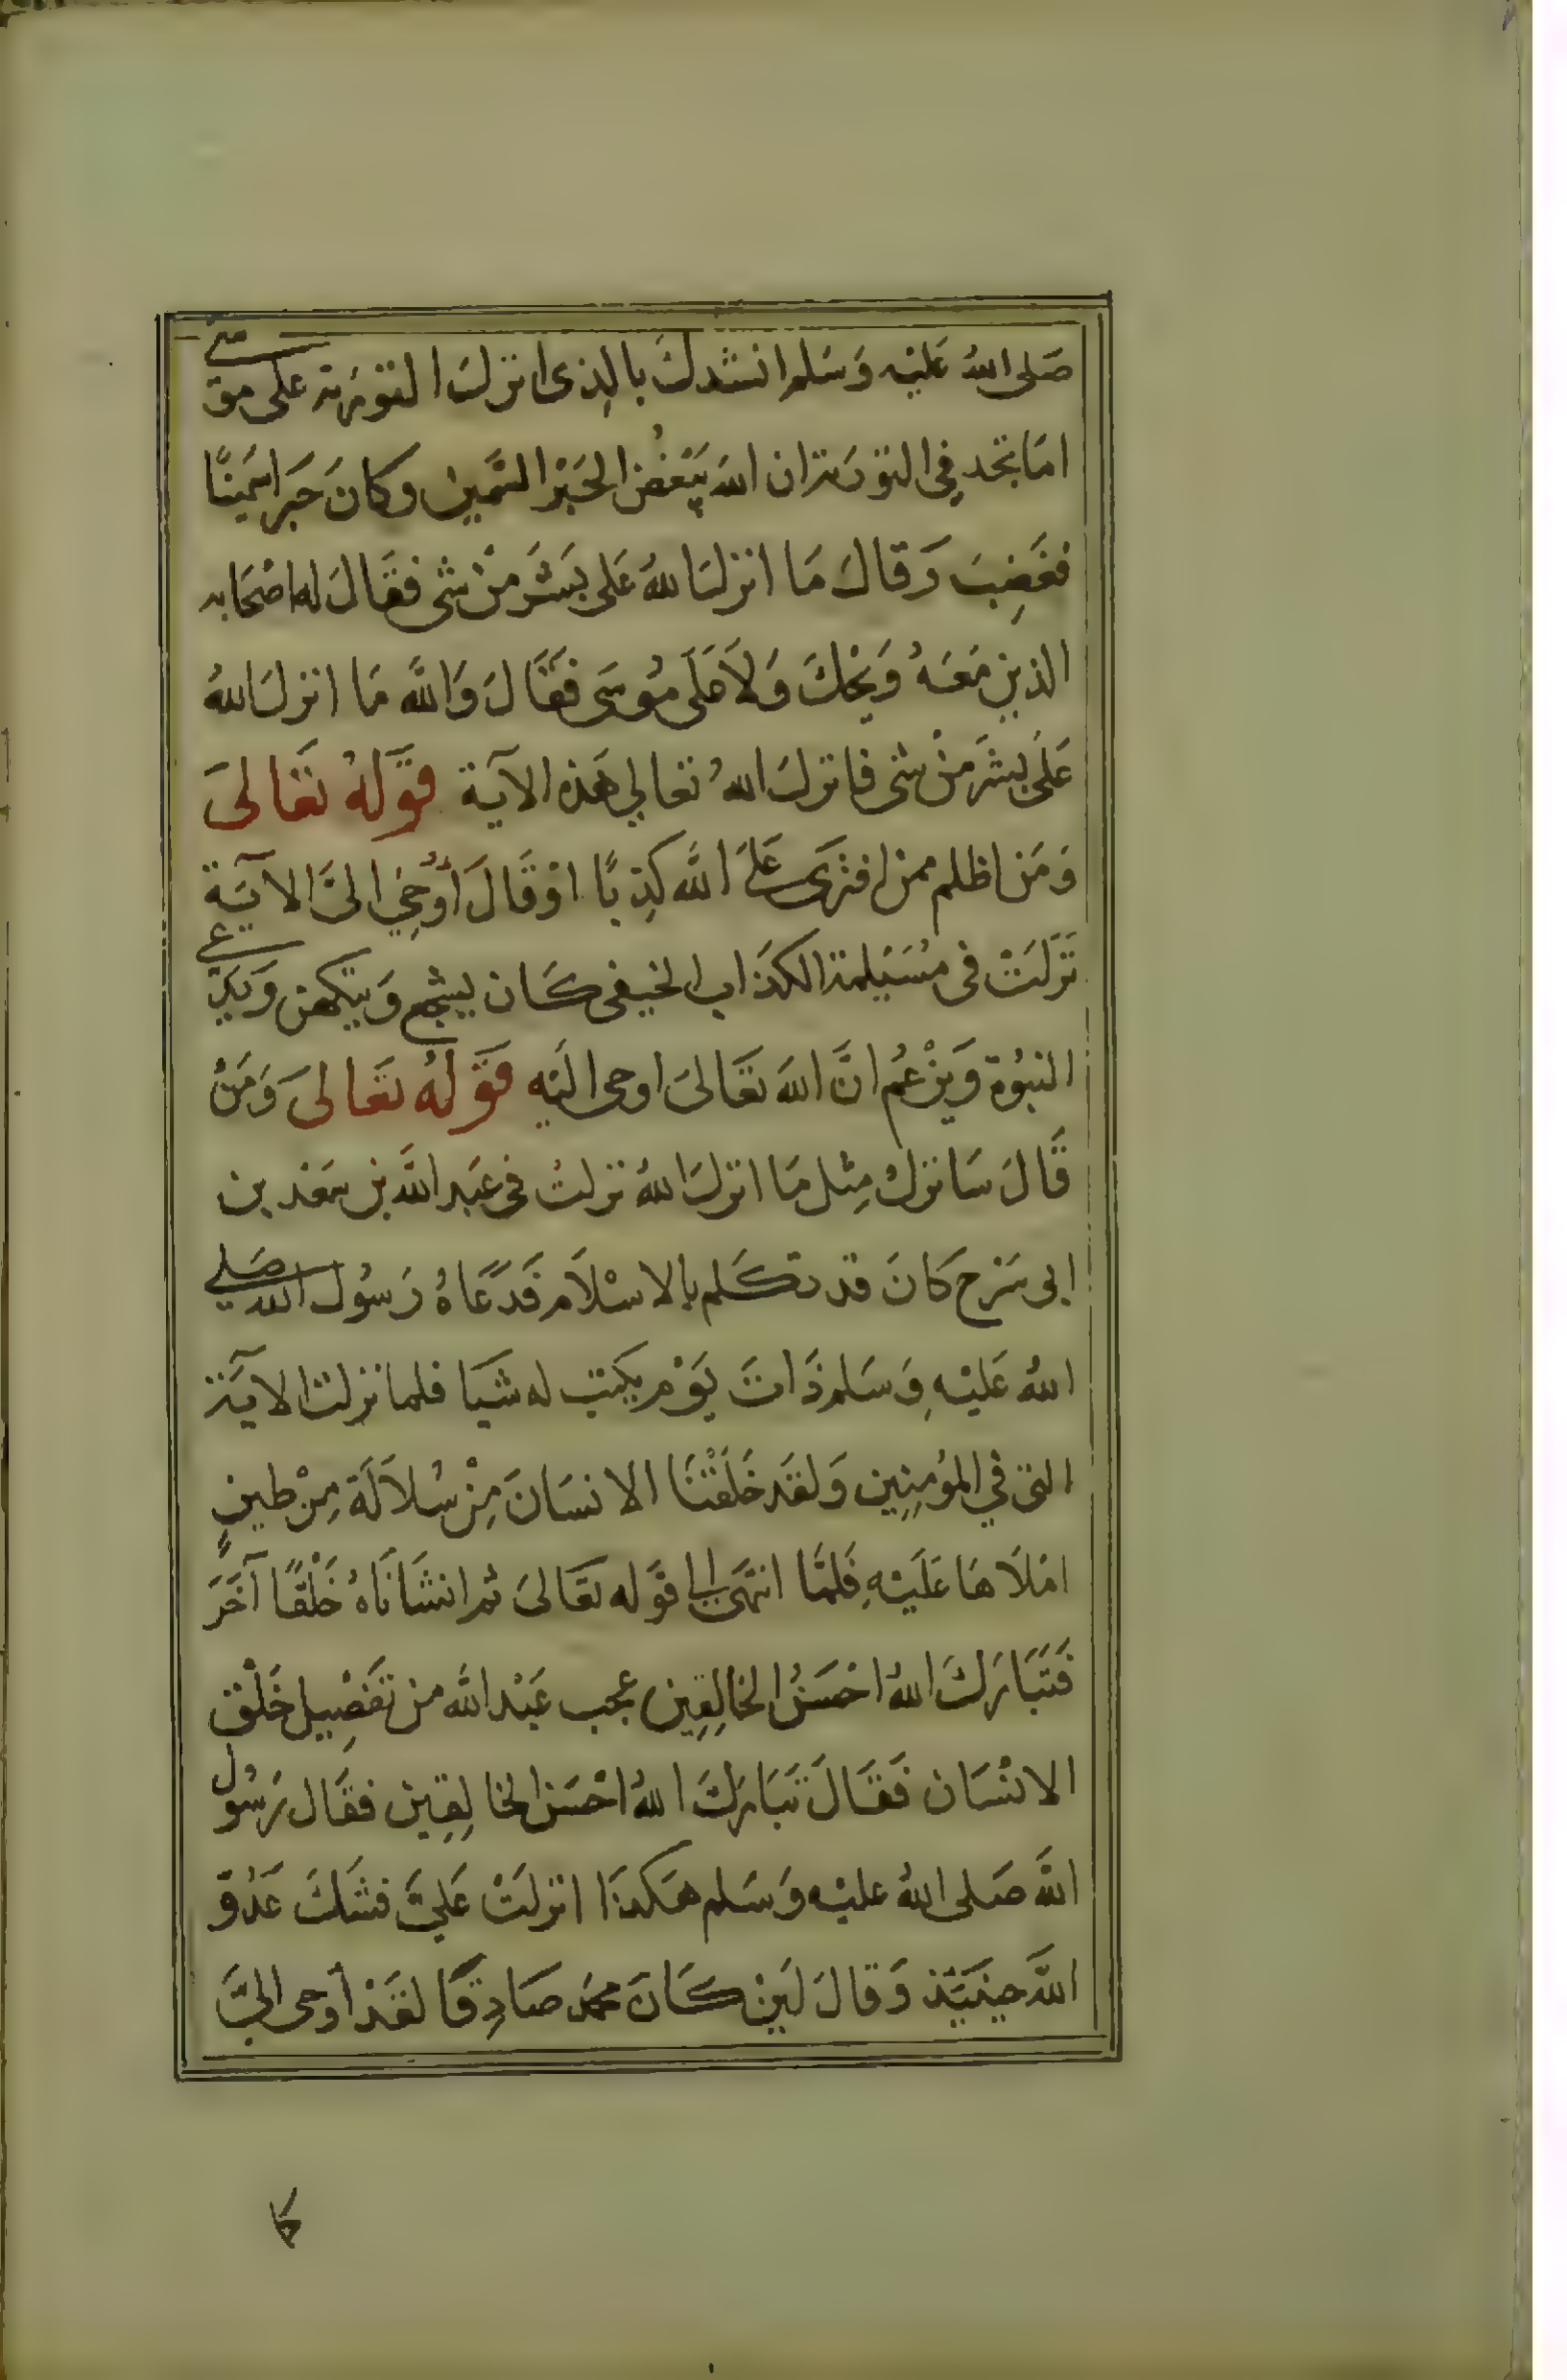 صَلى اللهُ عَليْه وَسَلم انشدكَ بالِذى انزلَ التورية على موسى
امَا تجد فِى التورية ان اللهَ يَبْغُضُ الحَبْرَ السَّمِين وكانَ حَبرا سَمينًا
فغَضِبَ وَقالَ مَا انزلَ اللهُ عَلى بَشَرٍ مِنْ شئ فقَالَ له اصْحَابه
الذين مَعَهُ وَيْحكَ وَلاَ عَلَى مُوسَى فقَالَ وَاللَّه مَا انزلَ اللهُ
عَلَى بشَر مِنْ شئ فانزلَ اللهُ تعالي هَذه الآية قَوَلهُ تَعَالىَ
وَمَن اظلم ممن افترَى عَلىَ اللَّه كذِبًا اوْ قَالَ أُوْحِيَ الىَّ الآيَة
نَزَلَتْ فى مُسَيْلمة الكذاب الحنيفى كَان يسْجع وَيتكهن وَيَدّعى
النبوُة وَيزْعُم انَّ اللهَ تعَالىَ اوحى الَيْهِ قَوَلُه تعَالىَ وَمَنْ
قَالَ سَانزلُ مِثل مَا انزلَ اللهُ نزلتْ فى عَبد اللَّه بن سَعْد بن
ابى سَرْح كَانَ قد تكَلم بالاسْلاَم فَدَعَاهُ رَسُول الله صَلى
اللهُ عَليْهِ وَسَلم ذَاتَ يَوْم يكتب له شَيَا فلما نزلت الآيَة
التى فِي المؤمِنِين وَلقَد خَلَقْنَا الانسَانَ مِنْ سُلاَلَة مِنْ طينٍ
امْلاَهَا عَلَيْهِ فَلمَّا انتهَى الى قَوله تعَالىَ ثم انشَانَاهُ خَلْقًا آخَرَ
فَتَبَارَكَ اللهُ احْسَنُ الخالِقِين عجب عَبْد الله من تفَصِيل خَلْق
الانْسَان فَقَالَ تَبَارَكَ اللهُ احْسَن الخالِقِين فقَال رَسُول
اللَّه صَلى اللهُ عليْه وَسَلم هَكذَا انزلَتْ عَليَّ فشَكَ عَدُوّ
اللَّه حِينَئِذ وَقالَ لَئِنْ كَانَ محمَد صَادِقًا لقَدْ أوحى اليَّ
كا